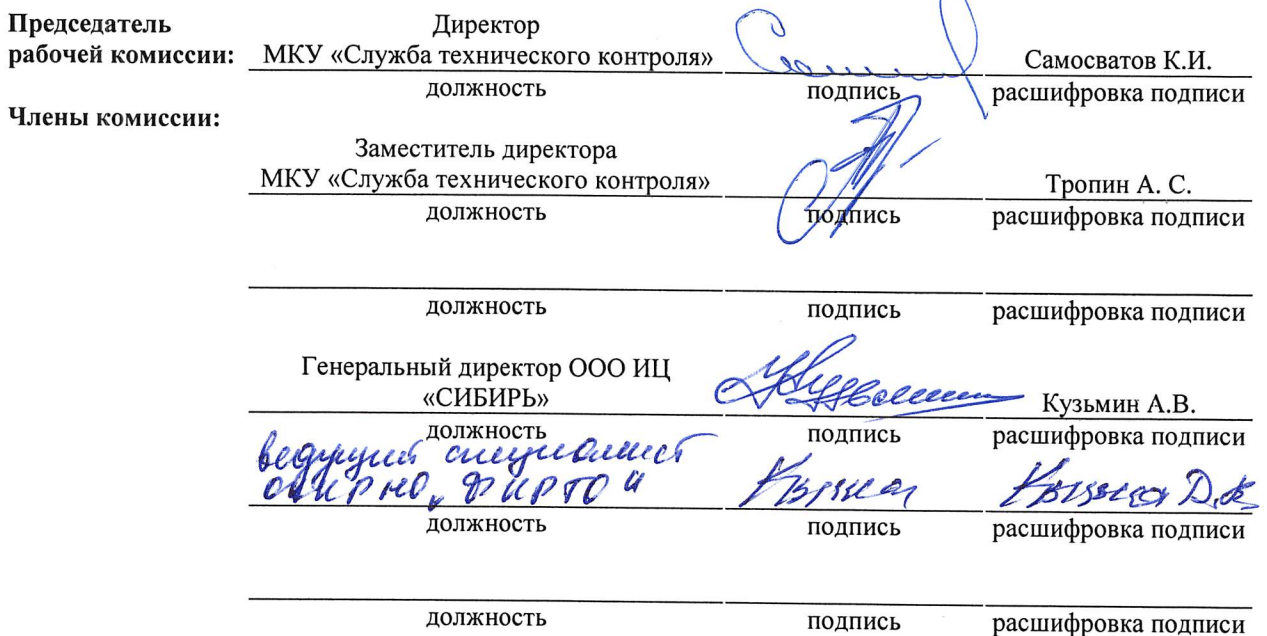 Председатель
Директор
рабочей комиссии: МКУ «Служба технического контроля» Самосватов К.И.
должность подпись расшифровка подписи
Члены комиссии:
Заместитель директора
МКУ «Служба технического контроля» Тропин А. С.
должность подпись расшифровка подписи
должность подпись расшифровка подписи
Генеральный директор ООО ИЦ
«СИБИРЬ» Кузьмин А.В.
должность подпись расшифровка подписи
ведущий специалист
должность подпись расшифровка подписи
должность подпись расшифровка подписи